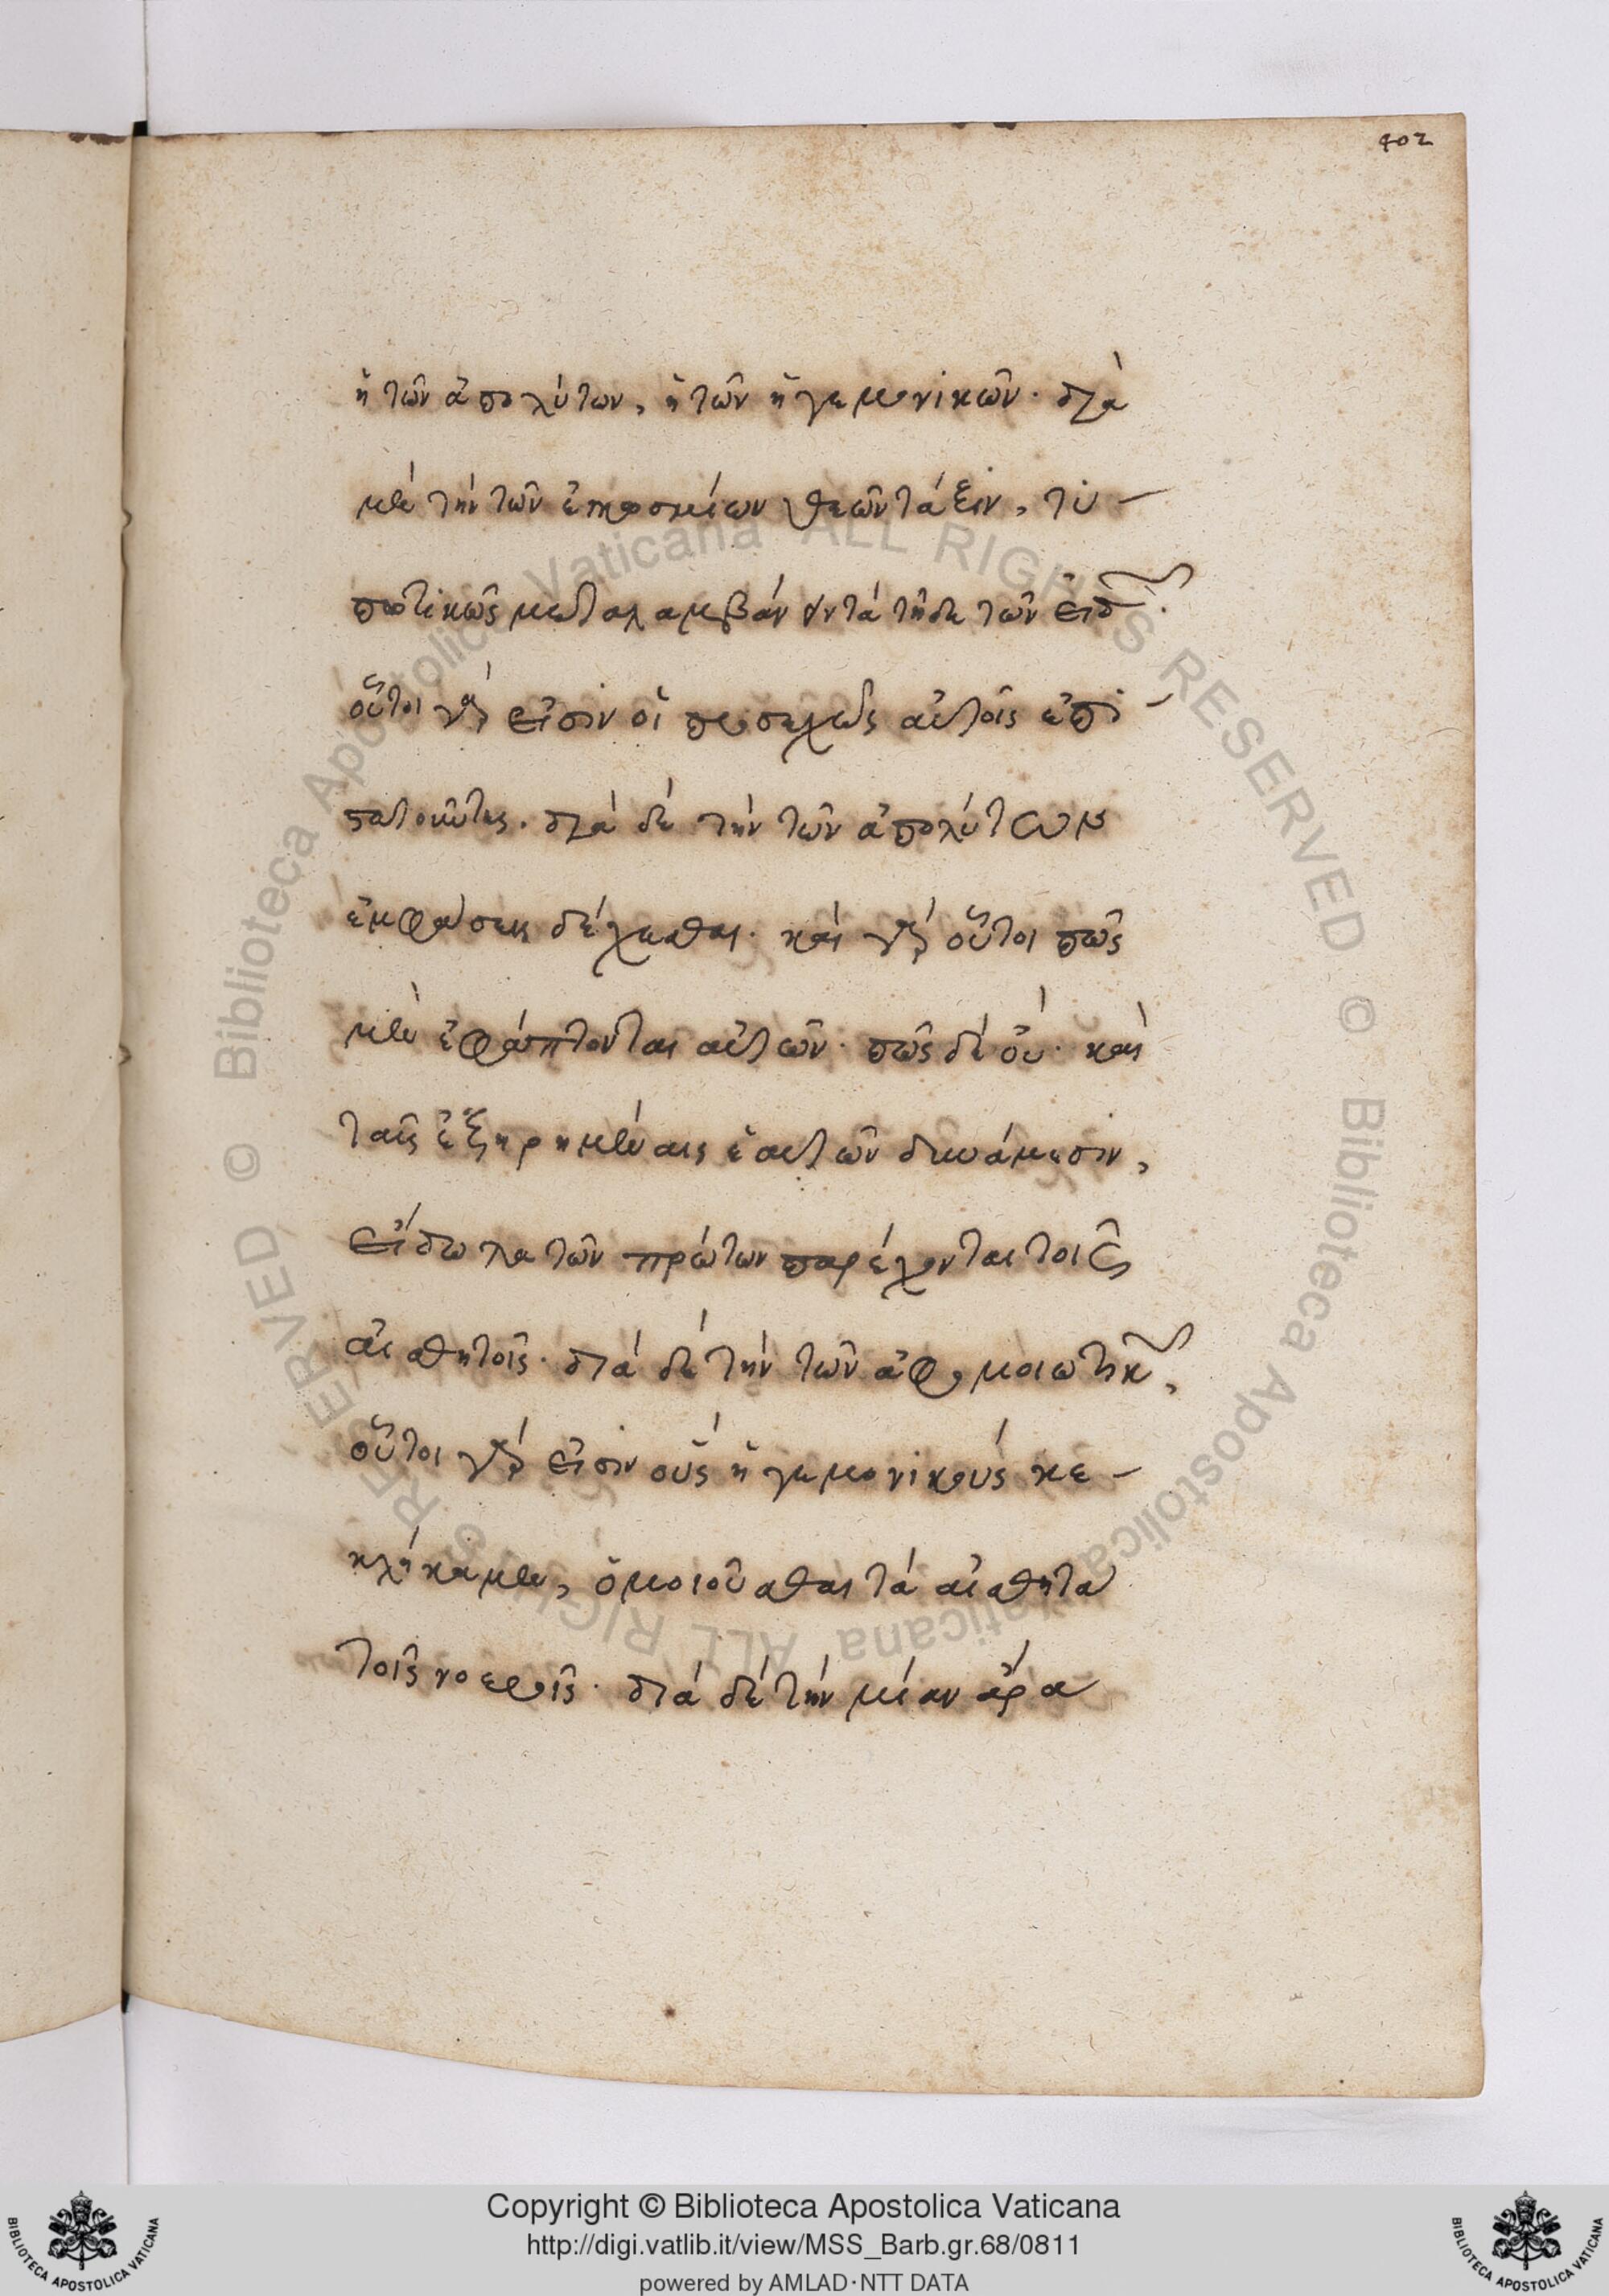 402
ἢ τῶν ἀπολύτων, ἢ τῶν ἡγεμονικῶν. διὰ
μὲν τὴν τῶν ἐγκοσμίων θεῶν τάξιν, τυ-
πωτικῶς μεταλαμβάνοντα τῇδε τῶν εἰδῶν.
οὗτοι γὰρ εἰσιν οἱ προσεχῶς αὐτοῖς ἐπι-
στατοῦντες. διὰ δὲ τὴν τῶν ἀπολύτων
ἐμφάσεις δέχεσθαι. καὶ γὰρ οὗτοι πῶς
μὲν ἐφάπτονται αὐτῶν. πῶς δὲ οὐ. καὶ
ταῖς ἐξῃρημέναις ἑαυτῶν δυνάμεσιν,
εἴδωλα τῶν πρώτων παρέχονται τοῖς
αἰσθητοῖς. διὰ δὲ τὴν τῶν ἀφομοιωτικῶν,
οὗτοι γὰρ εἰσιν οὓς ἡγεμονικοὺς κε-
κλήκαμεν, ὁμοιοῦσθαι τὰ αἰσθητὰ
τοῖς νοεροῖς. διὰ δὲ τὴν μίαν ἄρα
© Biblioteca Apostolica Vaticana ALL RIGHTS RESERVED © Biblioteca Apostolica Vaticana ALL RIGHTS RESERVED
Copyright © Biblioteca Apostolica Vaticana
http://digi.vatlib.it/view/MSS_Barb.gr.68/0811
powered by AMLAD·NTT DATA
BIBLIOTECA APOSTOLICA VATICANA
BIBLIOTECA APOSTOLICA VATICANA